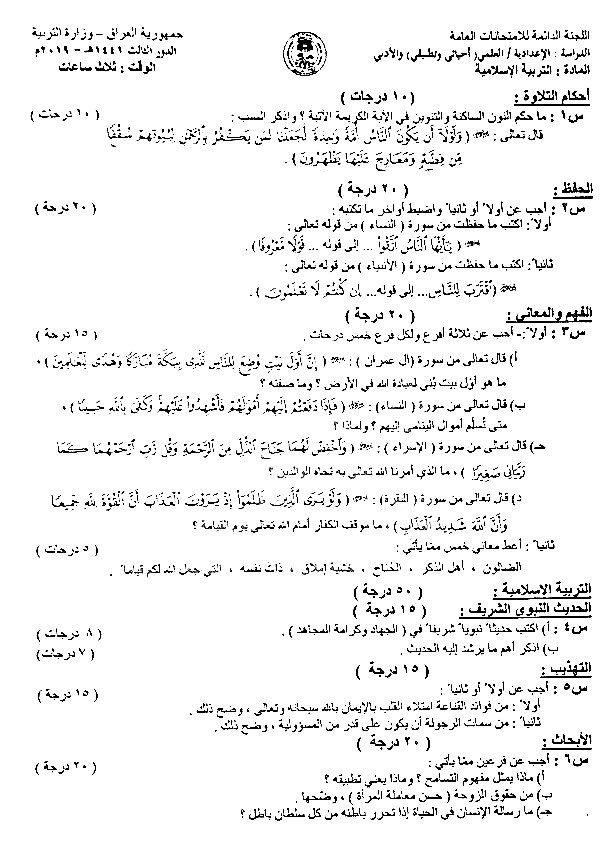 اللجنة الدائمة للامتحانات العامة
الدراسة : الإعدادية / العلمي( أحيائي وتطبيقي ) والأدبي
المادة : التربية الإسلامية
جمهورية العراق - وزارة التربية
الدور الثالث ١٤٤١هـ - ٢٠١٩م
الوقت : ثلاث ساعات
أحكام التلاوة : ( ١٠ درجات )
س١ : ما حكم النون الساكنة والتنوين في الآية الكريمة الآتية ؟ واذكر السبب : ( ١٠ درجات )
قال تعالى : ( وَلَوْلَا أَن يَكُونَ النَّاسُ أُمَّةً وَاحِدَةً لَجَعَلْنَا لِمَن يَكْفُرُ بِالرَّحْمَٰنِ لِبُيُوتِهِمْ سُقُفًا
مِن فِضَّةٍ وَمَعَارِجَ عَلَيْهَا يَظْهَرُونَ ) .
الحفظ : ( ٢٠ درجة )
س٢ : أجب عن أولاً أو ثانياً واضبط أواخر ما تكتبه : ( ٢٠ درجة )
أولاً : اكتب ما حفظت من سورة ( النساء ) من قوله تعالى :
( يَٰأَيُّهَا النَّاسُ اتَّقُوا ... إلى قوله ... قَوْلًا مَعْرُوفًا ) .
ثانياً : اكتب ما حفظت من سورة ( الأنبياء ) من قوله تعالى :
( اقْتَرَبَ لِلنَّاسِ... إلى قوله... إِن كُنتُمْ لَا تَعْلَمُونَ ) .
الفهم والمعاني : ( ٢٠ درجة )
س٣ : أولاً :- أجب عن ثلاثة أفرع ولكل فرع خمس درجات . ( ١٥ درجة )
أ) قال تعالى من سورة (ال عمران ) : ( إِنَّ أَوَّلَ بَيْتٍ وُضِعَ لِلنَّاسِ لَلَّذِى بِبَكَّةَ مُبَارَكًا وَهُدًى لِّلْعَٰلَمِينَ )
ما هو أول بيت بُني لعبادة الله في الأرض ؟ وما صفته ؟
ب) قال تعالى من سورة ( النساء) : ( فَإِذَا دَفَعْتُمْ إِلَيْهِمْ أَمْوَٰلَهُمْ فَأَشْهِدُوا عَلَيْهِمْ وَكَفَىٰ بِاللَّهِ حَسِيبًا )
متى تُسلّم أموال اليتامى إليهم ؟ ولماذا ؟
جـ) قال تعالى من سورة ( الإسراء ) : ( وَاخْفِضْ لَهُمَا جَنَاحَ الذُّلِّ مِنَ الرَّحْمَةِ وَقُل رَّبِّ ارْحَمْهُمَا كَمَا
رَبَّيَانِى صَغِيرًا ) ، ما الذي أمرنا الله تعالى به تجاه الوالدين ؟
د) قال تعالى من سورة ( البقرة) : ( وَلَوْ يَرَى الَّذِينَ ظَلَمُوا إِذْ يَرَوْنَ الْعَذَابَ أَنَّ الْقُوَّةَ لِلَّهِ جَمِيعًا
وَأَنَّ اللَّهَ شَدِيدُ الْعَذَابِ ) ، ما موقف الكفار أمام الله تعالى يوم القيامة ؟
ثانياً : أعط معاني خمس ممّا يأتي : ( ٥ درجات )
الضالون ، أهل الذكر ، الجُناح ، خشية إملاق ، ذات نفسه ، التي جعل الله لكم قياماً .
التربية الإسلامية : ( ٥٠ درجة )
الحديث النبوي الشريف : ( ١٥ درجة )
س٤ : أ) اكتب حديثاً نبوياً شريفاً في ( الجهاد وكرامة المجاهد ) . ( ٨ درجات )
ب) اذكر أهم ما يرشد إليه الحديث . ( ٧ درجات)
التهذيب : ( ١٥ درجة )
س٥ : أجب عن أولاً أو ثانياً : ( ١٥ درجة )
أولاً : من فوائد القناعة امتلاء القلب بالإيمان بالله سبحانه وتعالى ، وضح ذلك .
ثانياً : من سمات الرجولة أن يكون على قدر من المسؤولية ، وضح ذلك .
الأبحاث : ( ٢٠ درجة )
س٦ : أجب عن فرعين ممّا يأتي : ( ٢٠ درجة )
أ) ماذا يمثل مفهوم التسامح ؟ وماذا يعني تطبيقه ؟
ب) من حقوق الزوجة ( حسن معاملة المرأة ) ، وضّحها .
جـ) ما رسالة الإنسان في الحياة إذا تحرر باطنه من كل سلطان باطل ؟